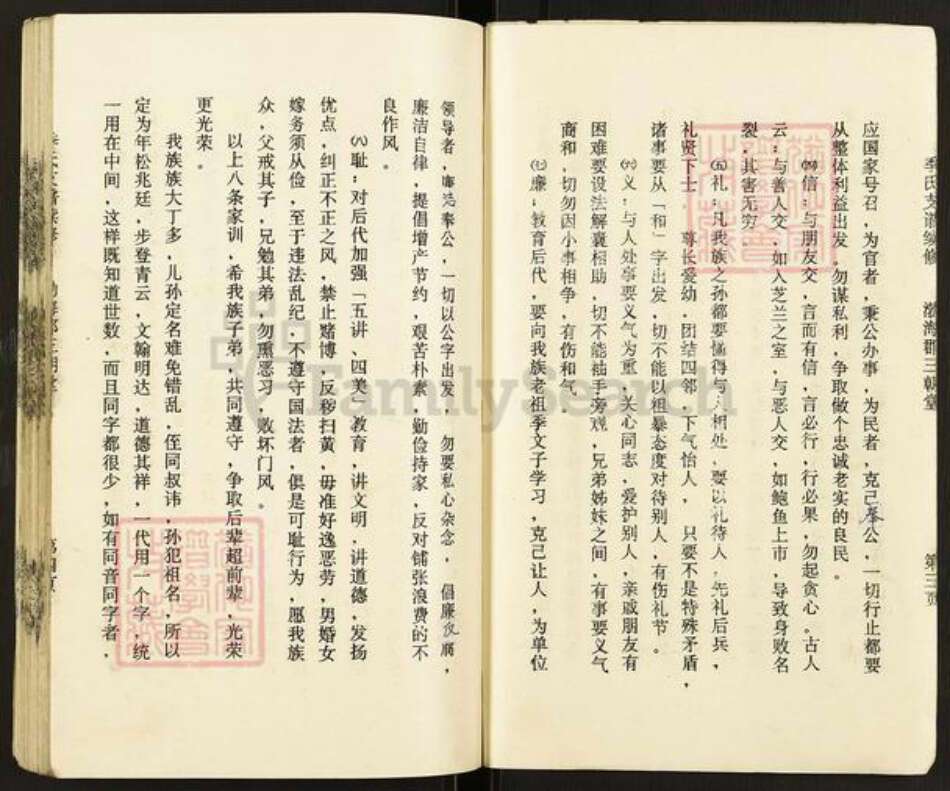 季氏支谱续修
渤海郡三朝堂
第三页
应国家号召，为官者，秉公办事，为民者，克己奉公，一切行止都要
从整体利益出发，勿谋私利，争取做个忠诚老实的良民。
㈣信：与朋友交，言而有信，言必行，行必果，勿起贪心。古人
云：与善人交，如入芝兰之室，与恶人交，如鲍鱼上市，导致身败名
裂，其害无穷。
㈤礼：凡我族之孙都要懂得与人相处，要以礼待人，先礼后兵，
礼贤下士，尊长爱幼，团结四邻，下气怡人，只要不是特殊矛盾，
诸事要从「和」字出发，切不能以粗暴态度对待别人，有伤礼节。
㈥义：与人处事要义气为重，关心同志，爱护别人，亲戚朋友有
困难要设法解囊相助，切不能袖手旁观，兄弟姊妹之间，有事要义气
商和，切勿因小事相争，有伤和气。
㈦廉：教育后代，要向我族老祖季文子学习，克己让人，为单位
领导者，廉洁奉公，一切以公字出发，勿要私心杂念，倡廉仪腐，
廉洁自律，提倡增产节约，艰苦朴素，勤俭持家，反对铺张浪费的不
良作风。
㈧耻：对后代加强「五讲、四美」教育，讲文明，讲道德，发扬
优点，纠正不正之风，禁止赌博，反秽扫黄，毋准好逸恶劳，男婚女
嫁务须从俭，至于违法乱纪，不遵守国法者，俱是可耻行为，愿我族
众，父戒其子，兄勉其弟，勿熏恶习，败坏门风。
以上八条家训，希我族子弟，共同遵守，争取后辈超前辈，光荣
更光荣。
我族族大丁多，儿孙定名难免错乱，侄同叔讳，孙犯祖名，所以
定为年松兆廷，步登青云，文翰明达，道德其祥，一代用一个字，统
一用在中间，这样既知道世数，而且同字都很少，如有同音同字者，
第四页
FamilySearch